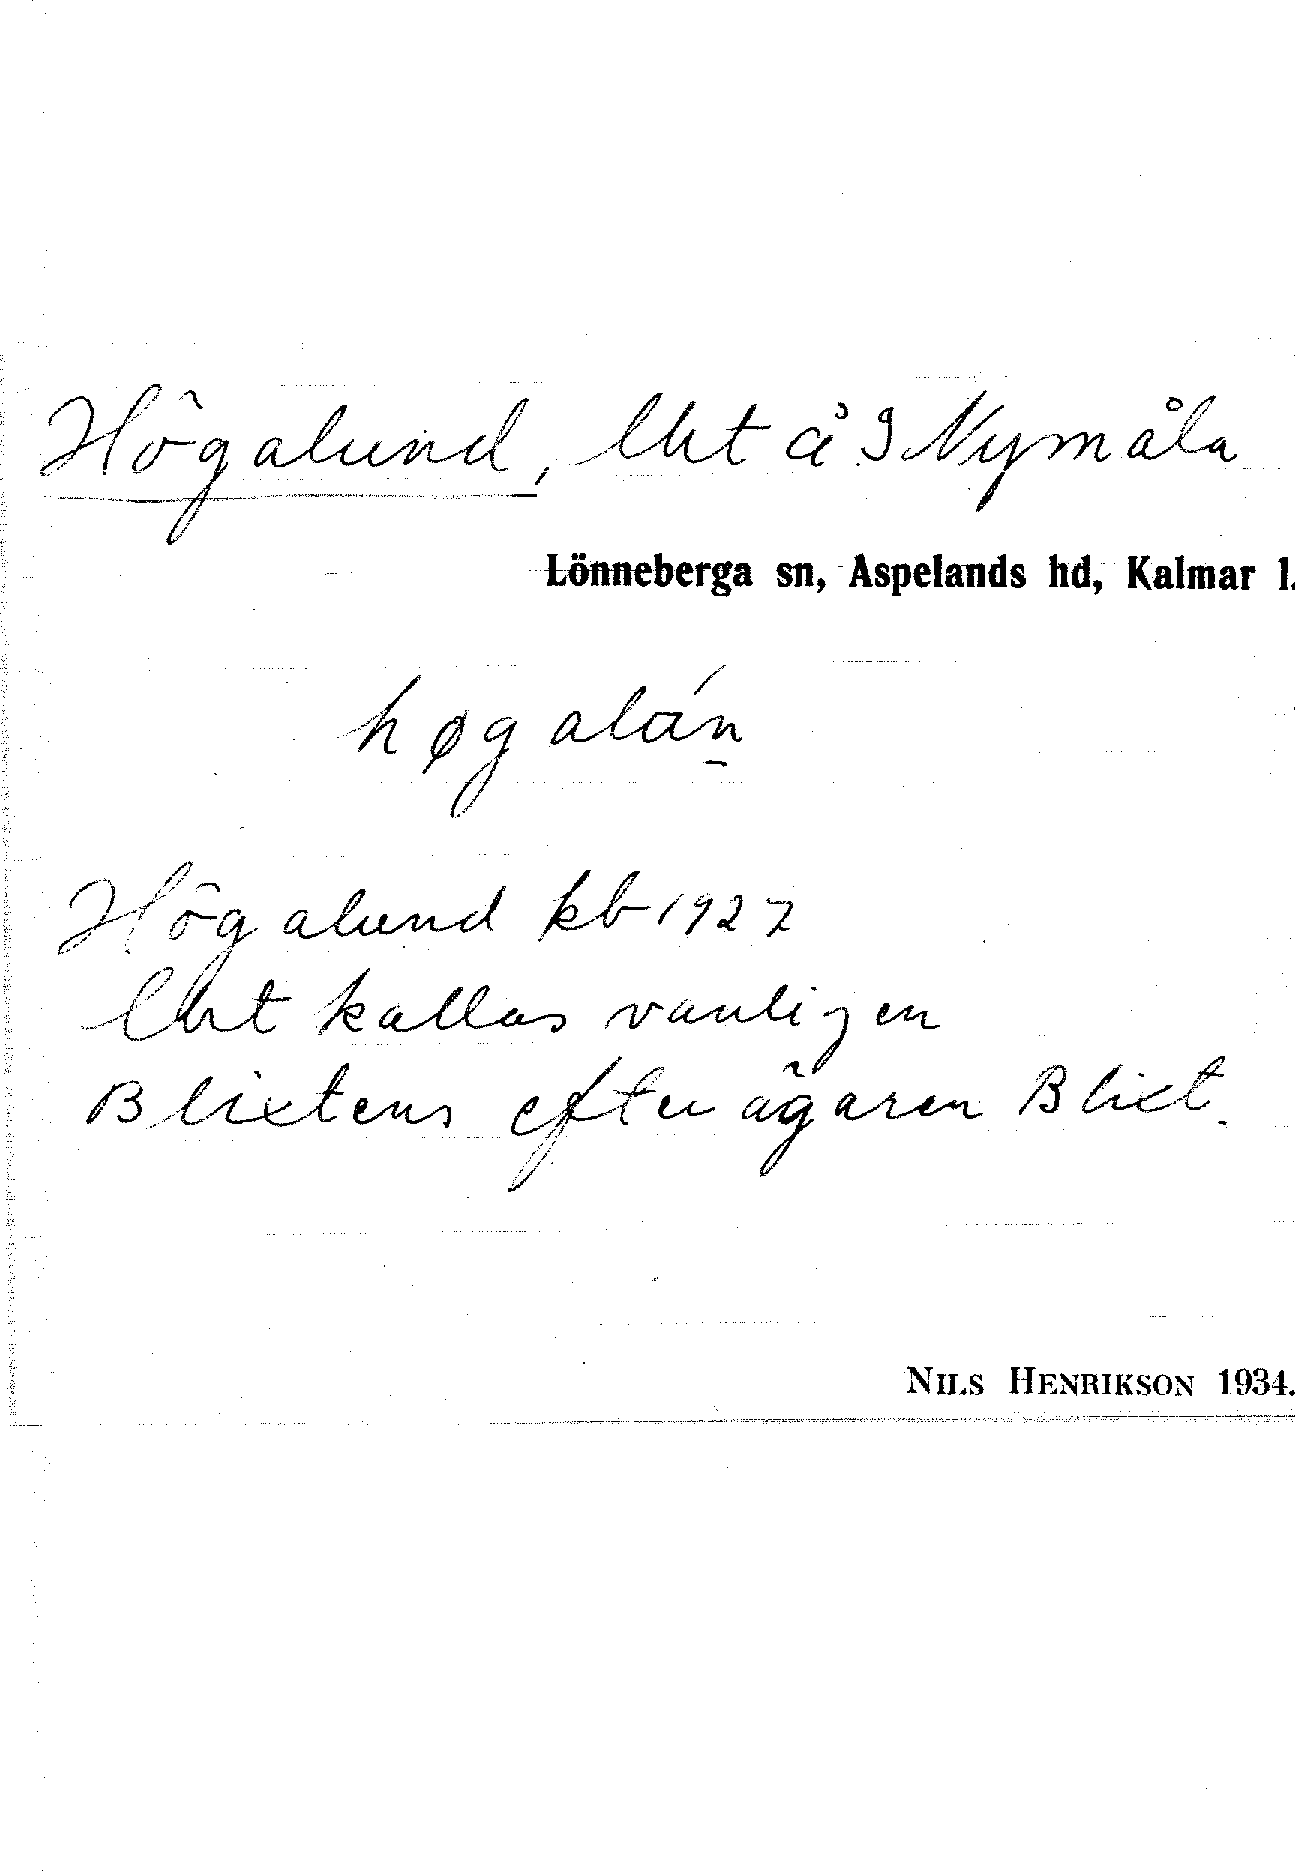 Högalund, lht å 3 Nymåla
Lönneberga sn, Aspelands hd, Kalmar l.
høgalán
Högalund kb 1927
lht kallas vanligen
Blixtens efter ägaren Blixt.
NILS HENRIKSON 1934.